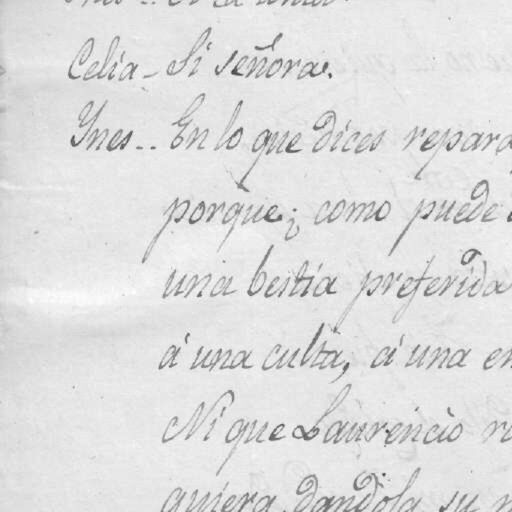 Celia - Si señora.
Ynes - - En lo que dices repara
porque; ¿como puede
una bestia preferida
á una culta, á una en
Ni que Laurencio
quiera dandola su